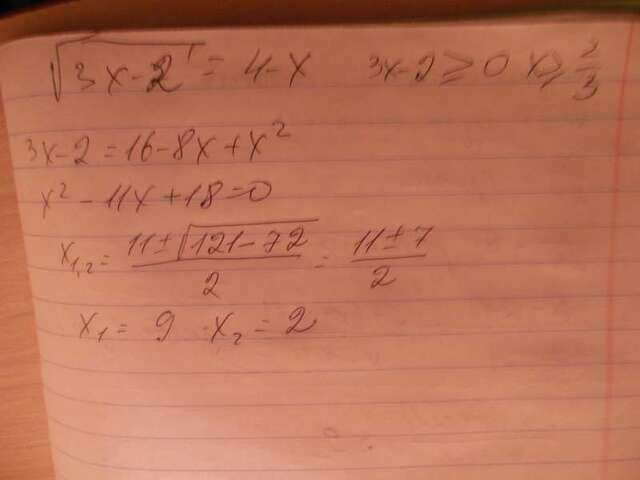 √(3x-2) = 4-x 3x-2 ≥ 0 x ≥ 2/3
3x-2 = 16-8x+x²
x² - 11x + 18 = 0
x₁,₂ = (11±√(121-72))/2 = (11±7)/2
x₁ = 9 x₂ = 2